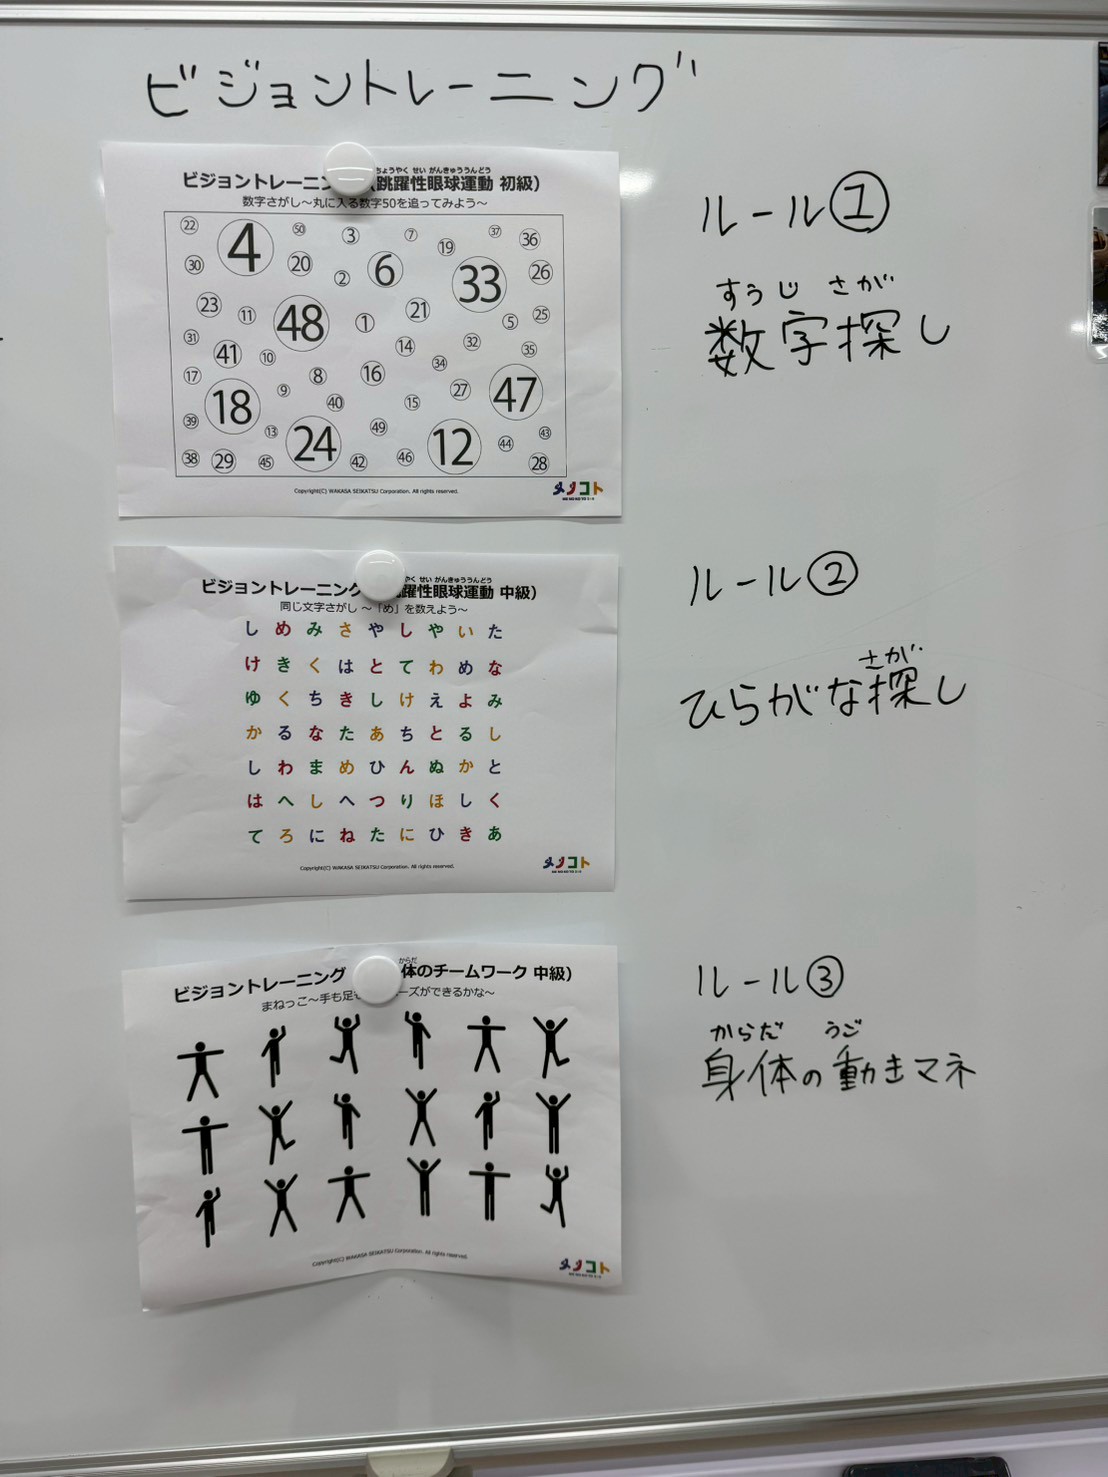 ビジョントレーニング
ちょうやく せい がんきゅううんどう
ビジョントレーニン 跳躍性眼球運動 初級）
数字さがし～丸に入る数字50を追ってみよう～
22 4 50 3 7 19 37 36
30 20 2 6 33 26
23 11 48 1 21 5 25
31 41 10 14 32 35
17 8 16 34
18 9 40 15 27 47
39 13 24 49 12 44 43
38 29 45 42 46 28
Copyright(C) WAKASA SEIKATSU Corporation. All rights reserved.
メノコト
ルール①
すうじ さが
数字探し
やく せい がんきゅううんどう
ビジョントレーニング 躍性眼球運動 中級）
同じ文字さがし ～「め」を数えよう～
し め み さ や し や い た
け き く は と て わ め な
ゆ く ち き し け え よ み
か る な た あ ち と る し
し わ ま め ひ ん ぬ か と
は へ し へ つ り ほ し く
て ろ に ね た に ひ き あ
Copyright(C) WAKASA SEIKATSU Corporation. All rights reserved.
メノコト
ルール②
さが
ひらがな探し
からだ
ビジョントレーニング 体のチームワーク 中級）
まねっこ～手も足 ーズができるかな～
Copyright(C) WAKASA SEIKATSU Corporation. All rights reserved.
メノコト
ルール③
からだ うご
身体の動きマネ